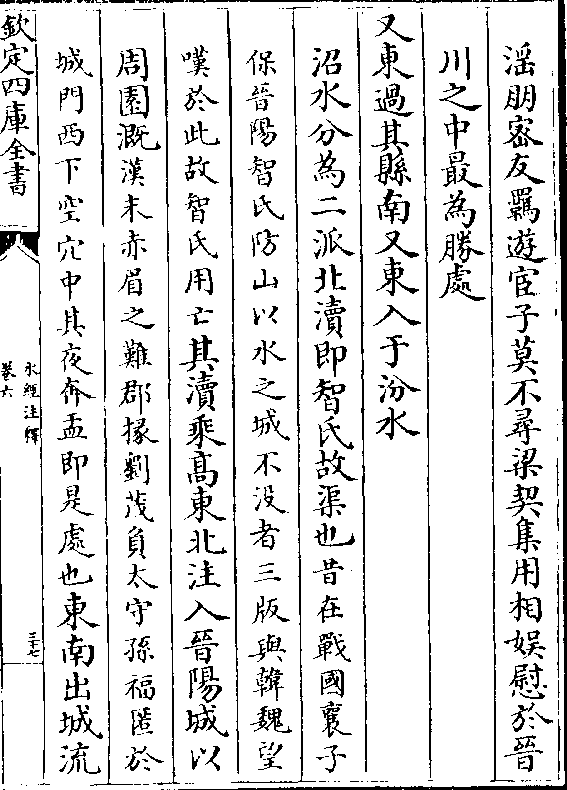 滛朋宻友羈遊宦子莫不尋梁契集用相娯慰於晉
川之中最為勝處
又東過其縣南又東入于汾水
沼水分為二派北瀆即智氏故渠也昔在戰國襄子
保晉陽智氏防山以水之城不没者三版與韓魏望
嘆於此故智氏用亡其瀆乗髙東北注入晉陽城以
周園溉漢末赤眉之難郡掾劉茂負太守孫福匿於
城門西下空穴中其夜奔盂即是處也東南出城流
欽定四庫全書
水經注釋
卷六
三十七